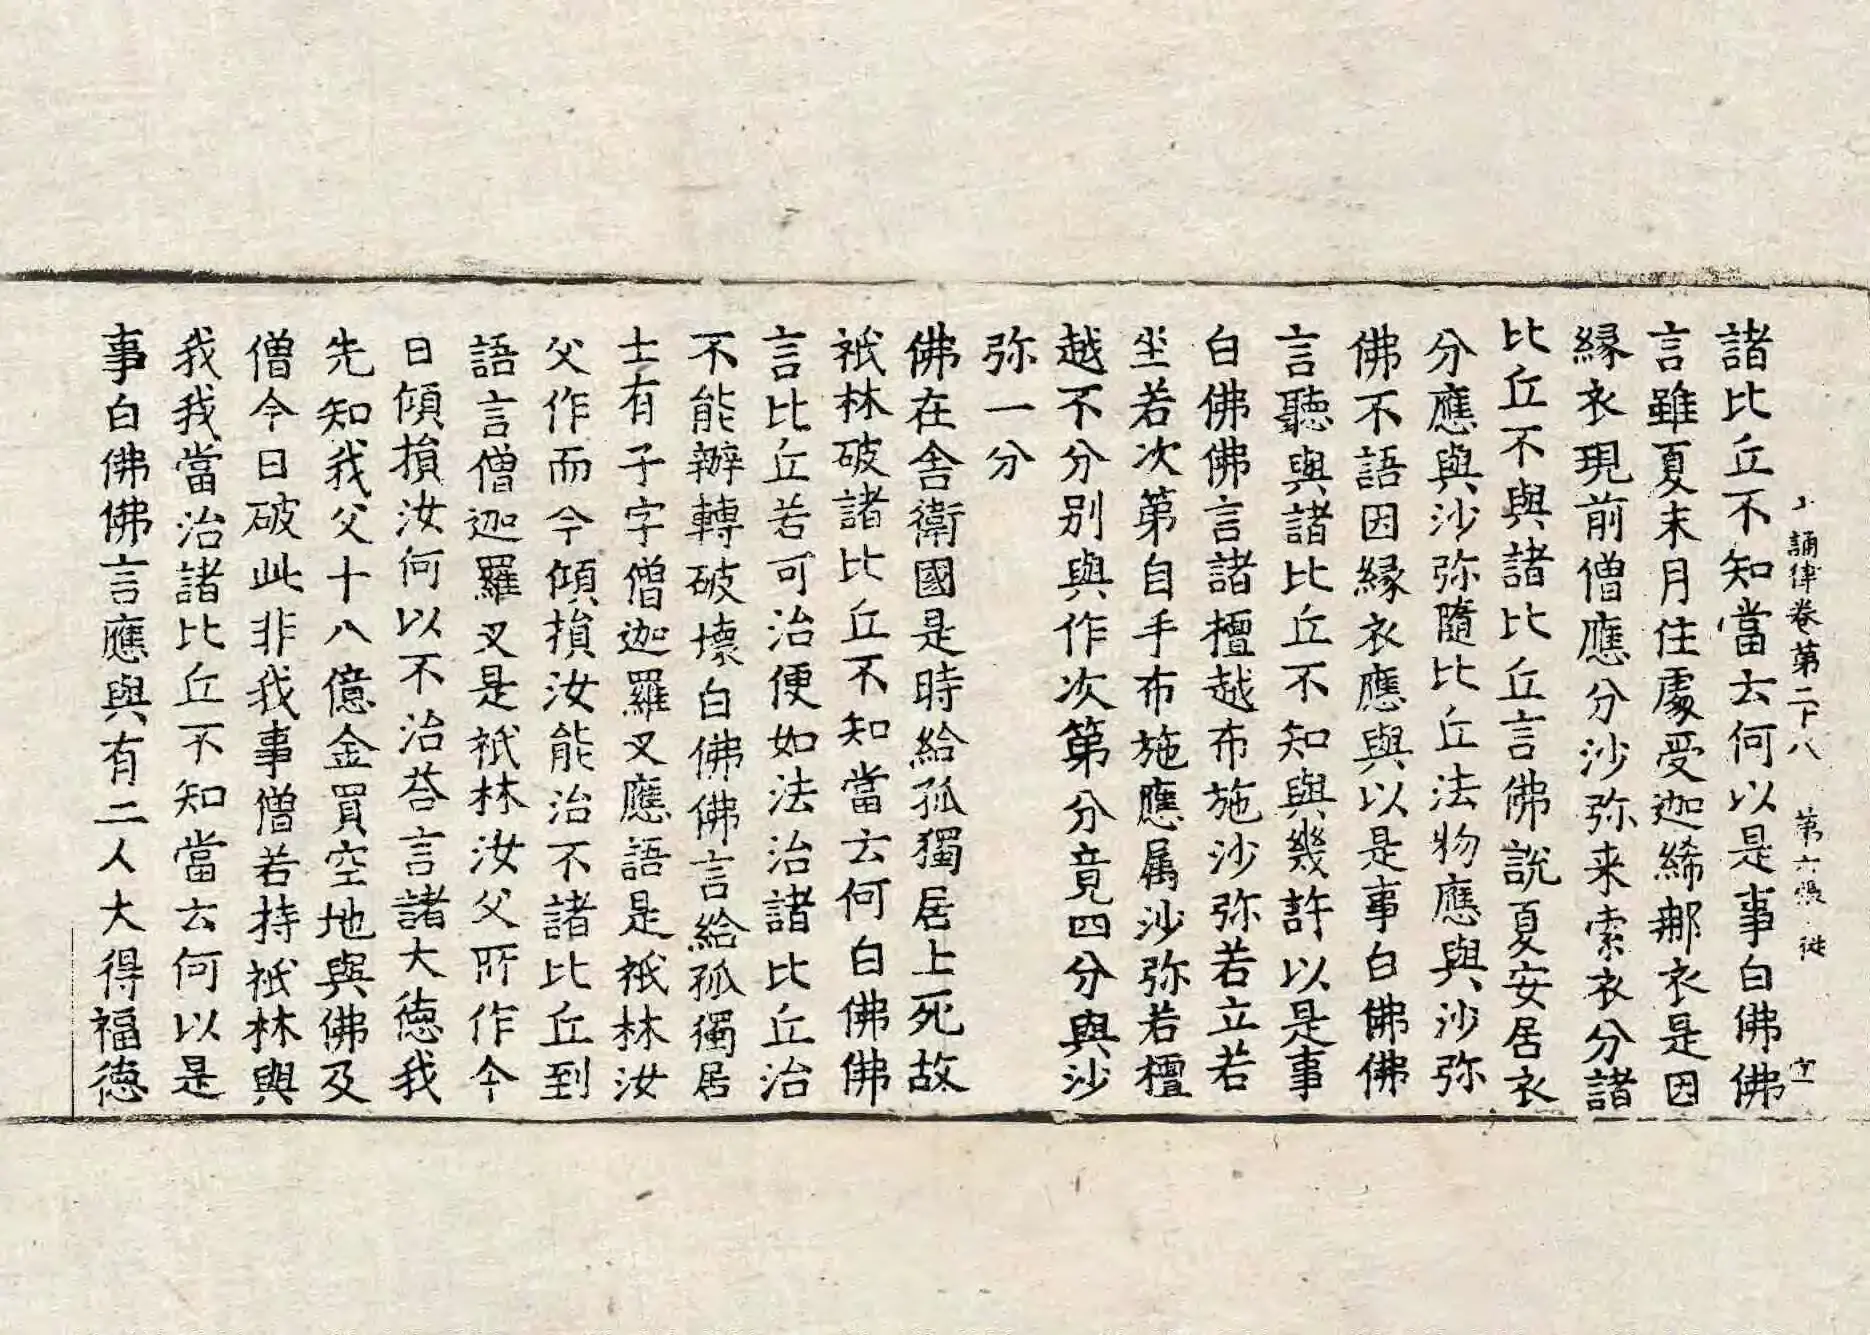 諸比丘不知當去何以是事白佛佛
言雖夏末月住處受迦絺那衣是因
縁衣現前僧應分沙弥来索衣分諸
比丘不與諸比丘言佛說夏安居衣
分應與沙弥隨比丘法物應與沙弥
佛不語因縁衣應與以是事白佛佛
言聽與諸比丘不知與幾許以是事
白佛佛言諸檀越布施沙弥若立若
坐若次第自手布施應属沙弥若檀
越不分別與作次第分竟四分與沙
弥一分
佛在舎衛國是時給孤獨居士死故
祇林破諸比丘不知當去何白佛佛
言比丘若可治便如法治諸比丘治
不能辦轉破壊白佛佛言給孤獨居
士有子字僧迦羅叉應語是祇林汝
父作而今傾損汝能治不諸比丘到
語言僧迦羅叉是祇林汝父所作今
日傾損汝何以不治荅言諸大徳我
先知我父十八億金買空地與佛及
僧今日破此非我事僧若持祇林與
我我當治諸比丘不知當去何以是
事白佛佛言應與有二人大得福徳
誦律卷第二十八 第六張 徙